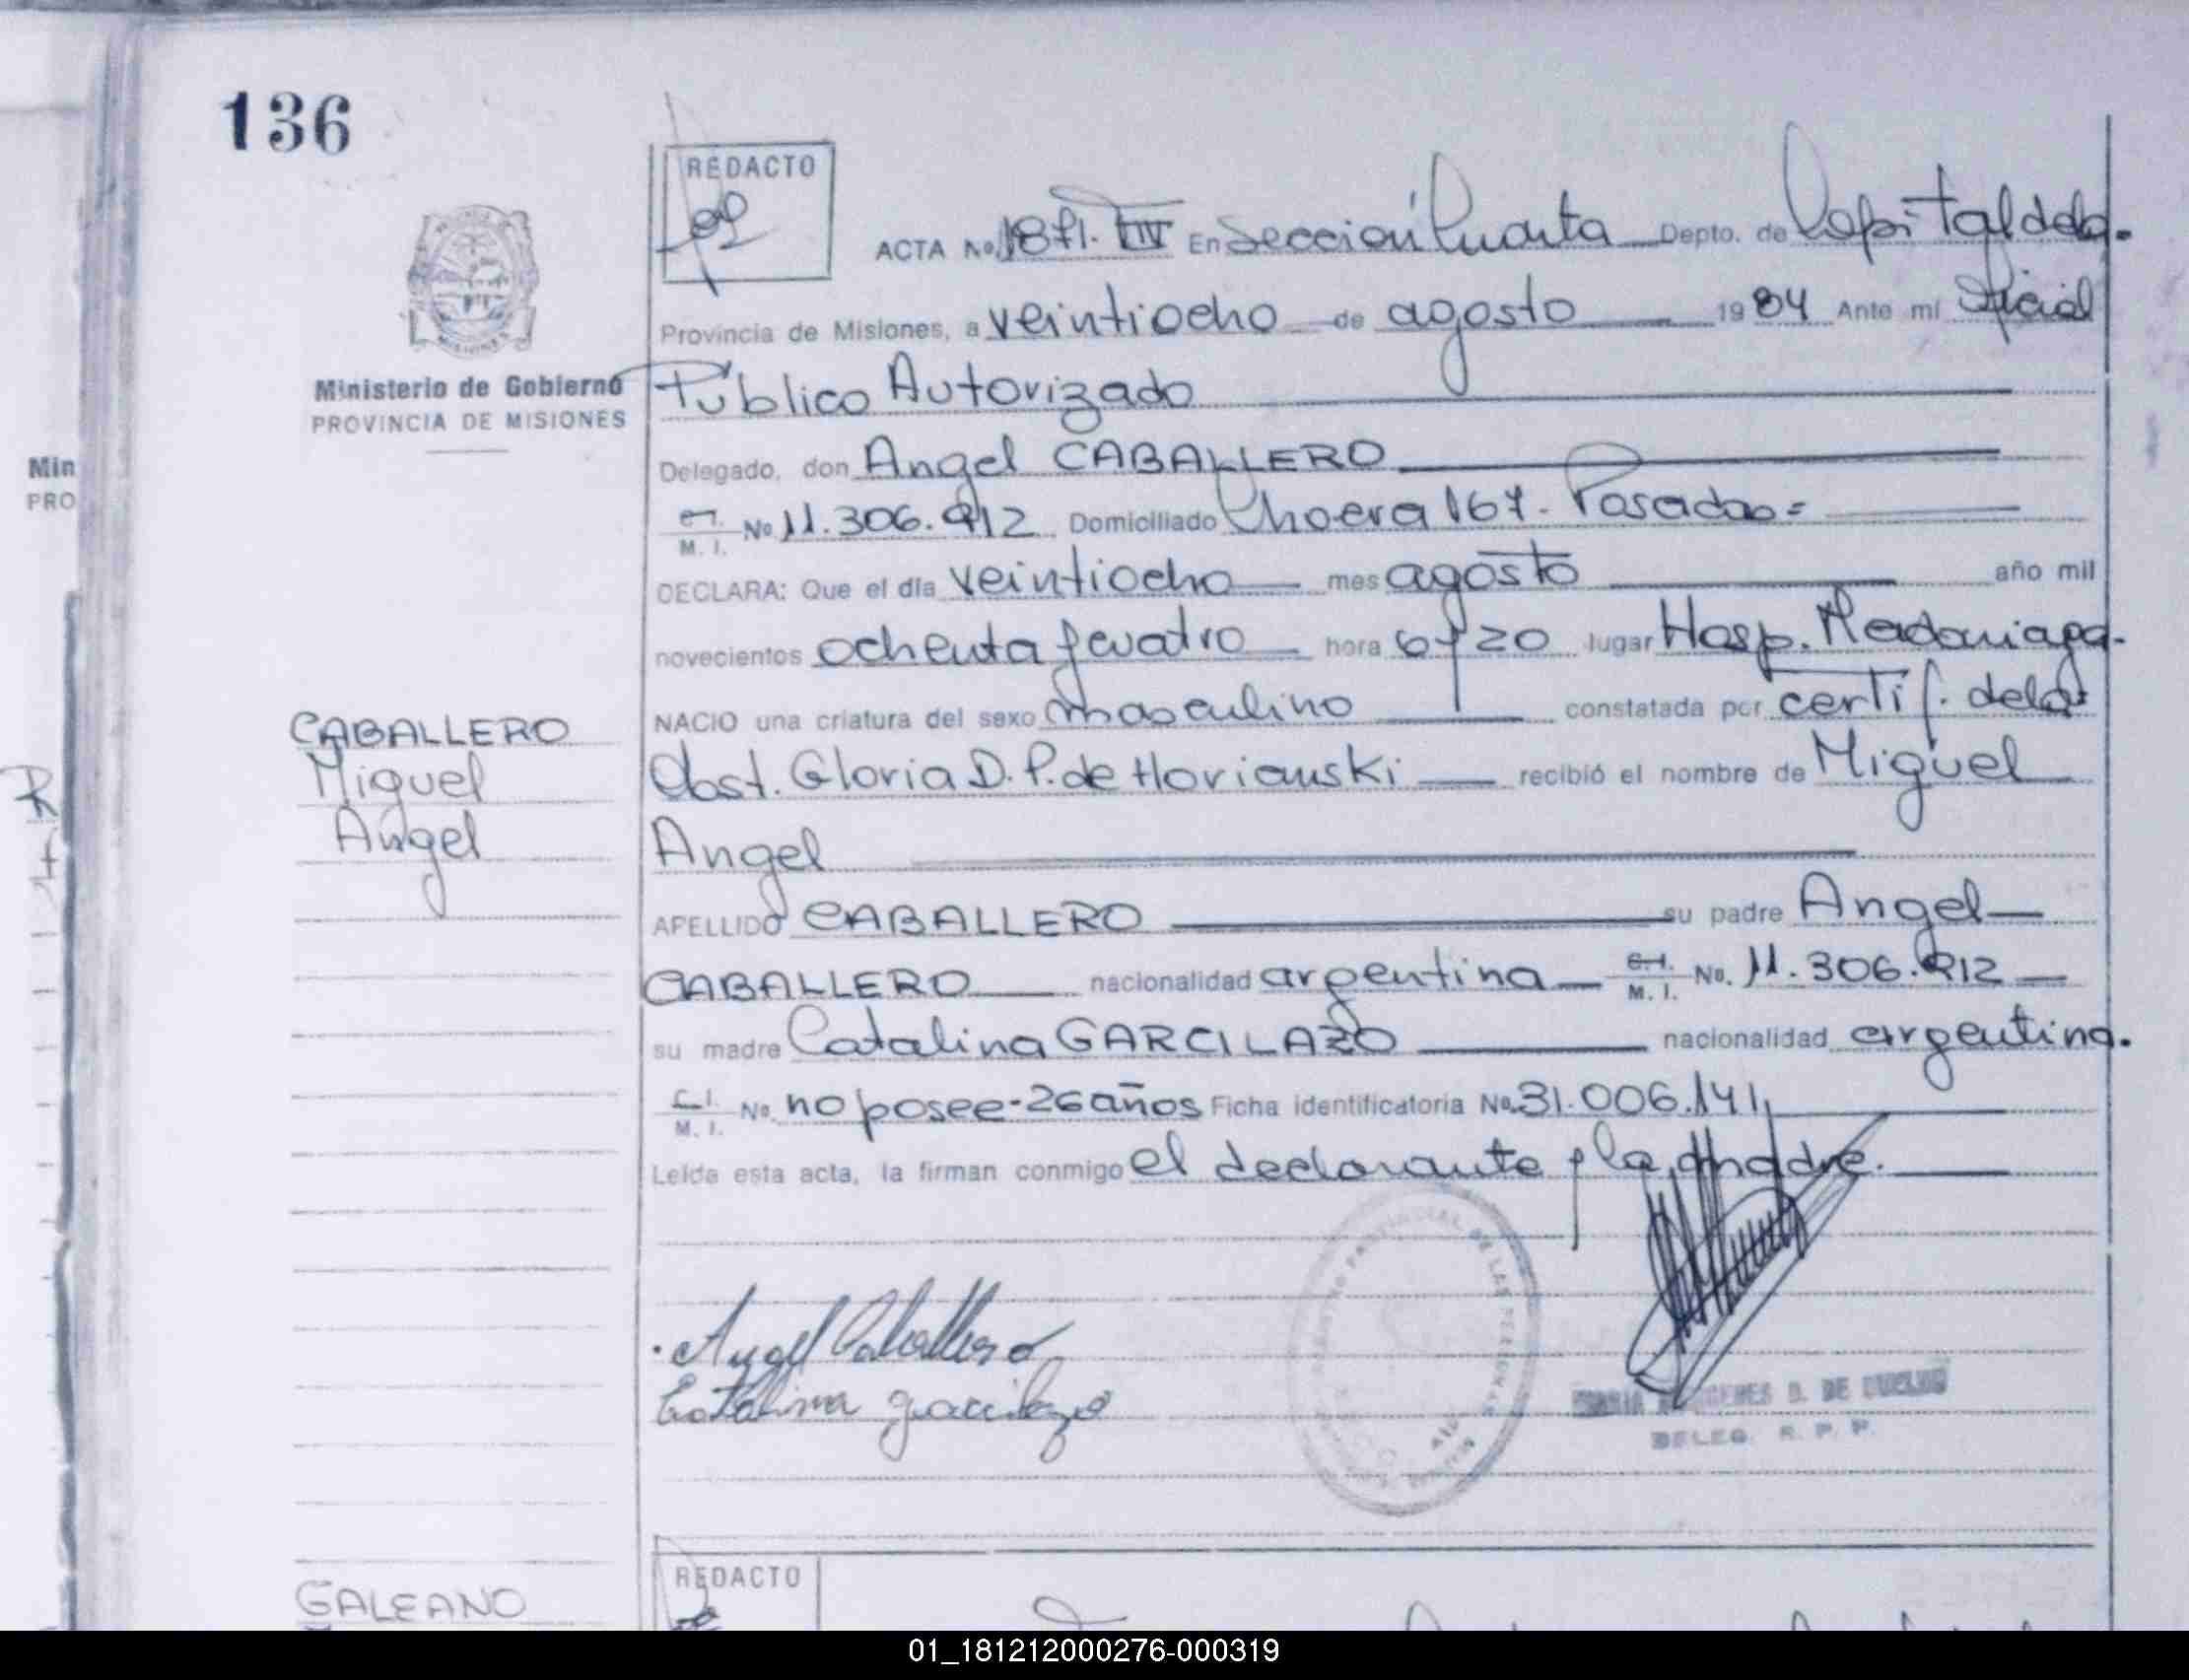 136
REDACTO
ACTA No 1871. TIV En Sección Cuarta Depto. de Capital dela.
Provincia de Misiones, a veintiocho de agosto 1984 Ante mi Oficial
Ministerio de Gobierno
PROVINCIA DE MISIONES
Público Autorizado
Delegado, don Angel CABALLERO
Min
PRO
M. I. No 11.306.912 Domiciliado 167. Posadas=
DECLARA: Que el día veintiocho mes agosto año mil
novecientos ochenta y cuatro hora 6 y 20 lugar Hosp. Madariaga.
NACIO una criatura del sexo masculino constatada por certif. dela
CABALLERO
Miguel
Angel
Obst. Gloria D. P. de Horianski recibió el nombre de Miguel
Angel
APELLIDO CABALLERO su padre Angel
CABALLERO nacionalidad argentina C.I. M. I. No. 11.306.912
su madre Catalina GARCILAZO nacionalidad argentina.
C.I. M. I. No. no posee-26 años Ficha identificatoria No. 31.006.141
Leída esta acta, la firman conmigo el declarante y la madre.
REGISTRO PROVINCIAL DE LAS PERSONAS
Angel Caballero
Catalina garcilazo
D. DE
DELEG. R. P. P.
REDACTO
GALEANO
01_181212000276-000319